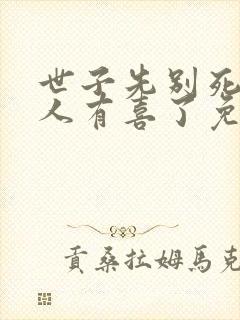 世子先别死
人有喜了免
貢桑拉姆馬克